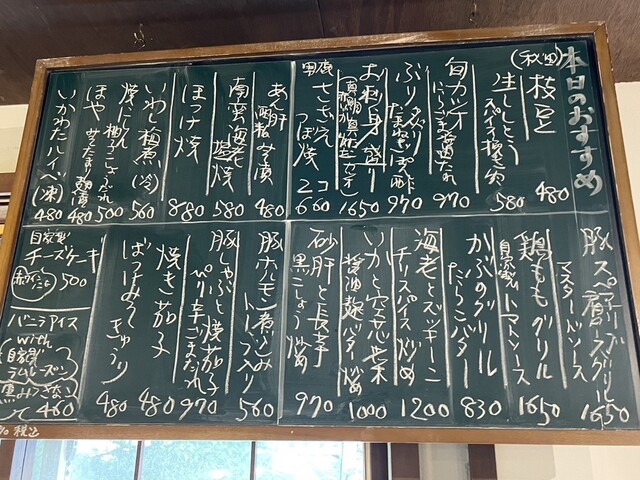 本日のおすすめ
(秋田)枝豆 480
生ししとう
スパイス揚げ 580
旬カツオ
にらごま醤油だれ 970
ぶりしゃぶり
たまねぎぽん酢 970
お刺身盛り 1650
男鹿 さざえつぼ焼 2コ 660
あん肝
酒粕みそ漬 480
南蛮海老塩焼 580
ほっけ焼 880
いわし梅煮(冷) 560
焼にしん
柚子こしょうぶれ 500
ほや 480
いかわたルイベ(凍) 480
豚スペアリブグリル
マスタードソース 1650
鶏ももグリル
自家製トマトソース 1650
かぶのグリル
たらこバター 830
海老とズッキーニ
チリスパイス炒め 1200
いかと空芯菜
醤油麹バター炒め 1000
砂肝と長芋
黒こしょう炒め 970
豚ホルモン煮込み
とうふ入り 560
豚しゃぶと焼茄子
ピリ辛ごまだれ 970
焼き茄子 480
ばっけみそきゅうり 480
自家製
チーズケーキ 500
バニラアイス
with
自家製
ラムレーズン
460
税込